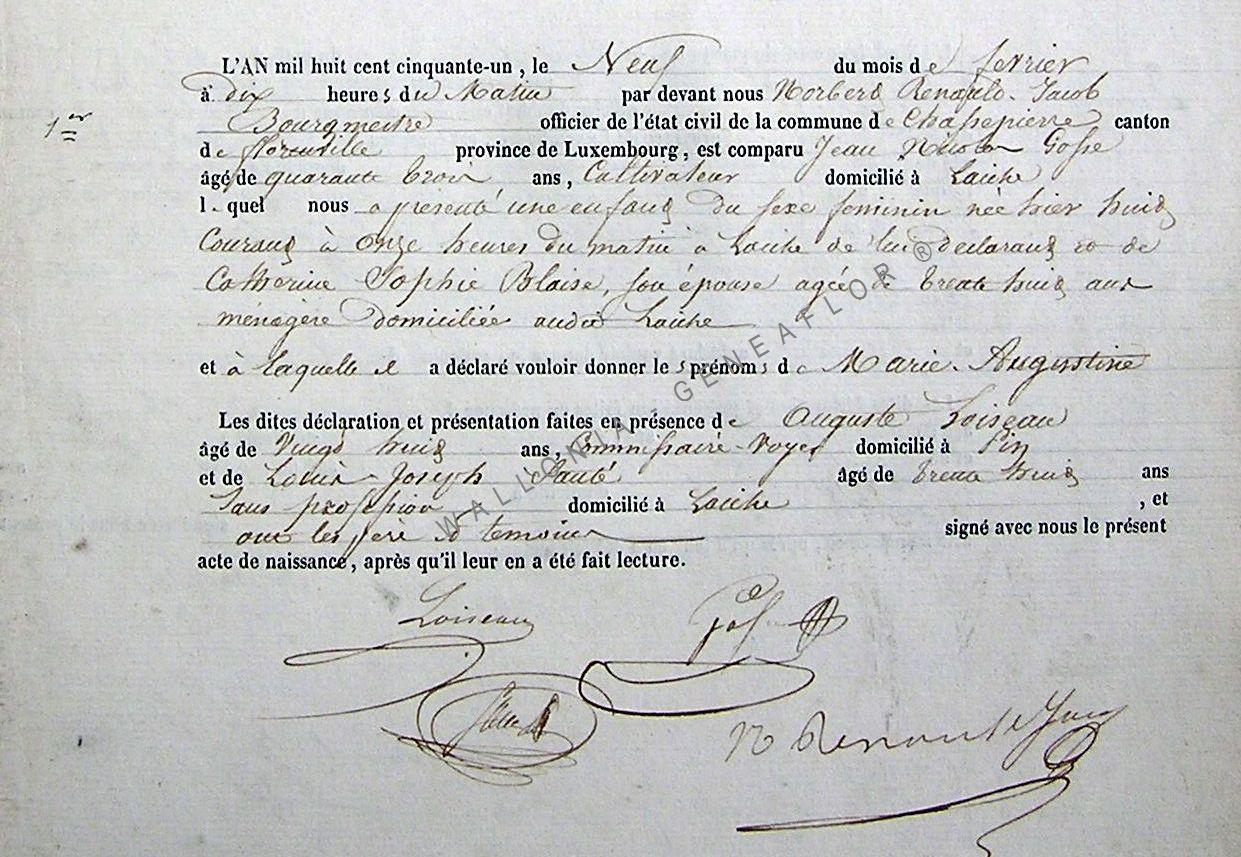 L'AN mil huit cent cinquante-un, le Neuf du mois de fevrier
à dix heures du Matin par devant nous Norbert Renauld-Jacob
1er
Bourgmestre officier de l'état civil de la commune de Chassepierre canton
de florenville province de Luxembourg, est comparu Jean Gosse
âgé de quarante trois ans, Cultivateur domicilié à Laiche
lequel nous a présenté une enfant du sexe feminin née hier huit
Courant à onze heures du matin à Laiche de lui déclarant et de
Catherine Sophie Blaise, son épouse agée de trente huit ans
ménagère domiciliée audit Laiche
et à laquelle il a déclaré vouloir donner les prénoms de Marie-Augustine
Les dites déclaration et présentation faites en présence de Auguste Loiseau
âgé de Vingt huit ans, Commissaire-Voyer domicilié à Pin
et de Louis-Joseph âgé de trente huit ans
Sans profession domicilié à Laiche, et
ont les père et temoins signé avec nous le présent
acte de naissance, après qu'il leur en a été fait lecture.
WALLONIA GENEAFLOR ®
Loiseau
N Renauld Jacob